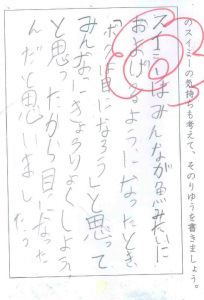 のスイミーの気持ちも考えて、そのりゆうを書きましょう。
スイミーはみんなが魚みたいに
およげるようになったとき、
ぼくが目になろうと思って
みんなときょうりょくしよう
と思ったから目になった
んだと思いました。